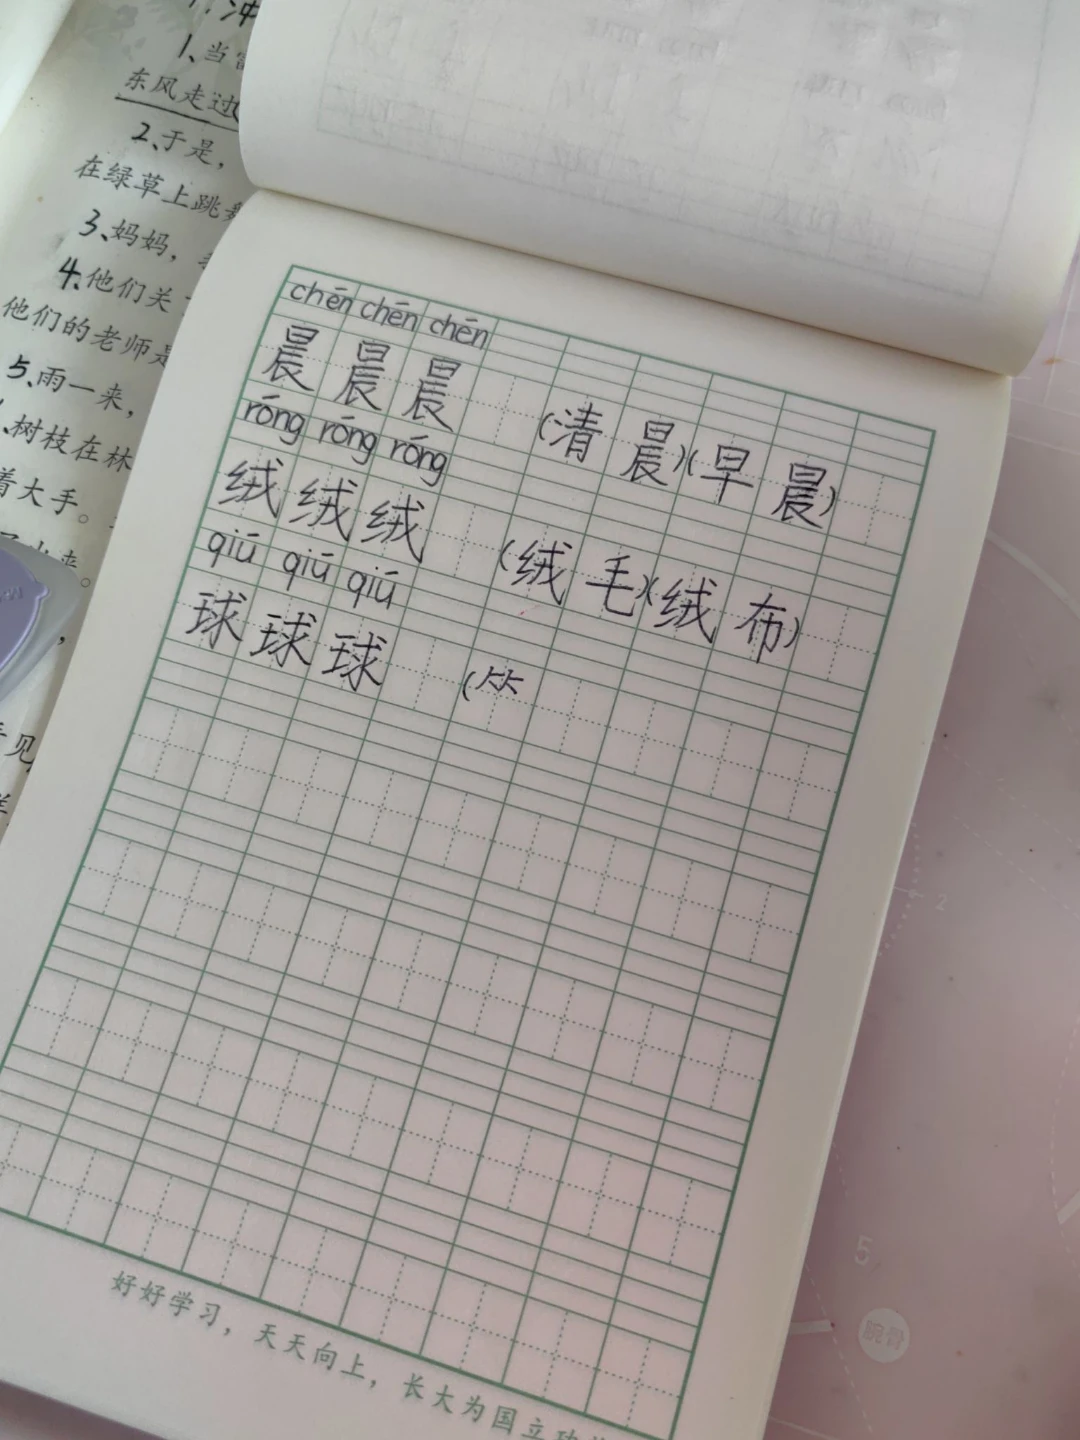 1、当
东风走过
2、于是，
在绿草上跳
3、妈妈，
4、他们关
他们的老师是
5、雨一来，
树枝在林
着大手。
chén chén chén
晨 晨 晨 (清 晨)(早 晨)
róng róng róng
绒 绒 绒 (绒 毛)(绒 布)
qiú qiú qiú
球 球 球 (
好好学习，天天向上，长大为国立
5
2
腕骨